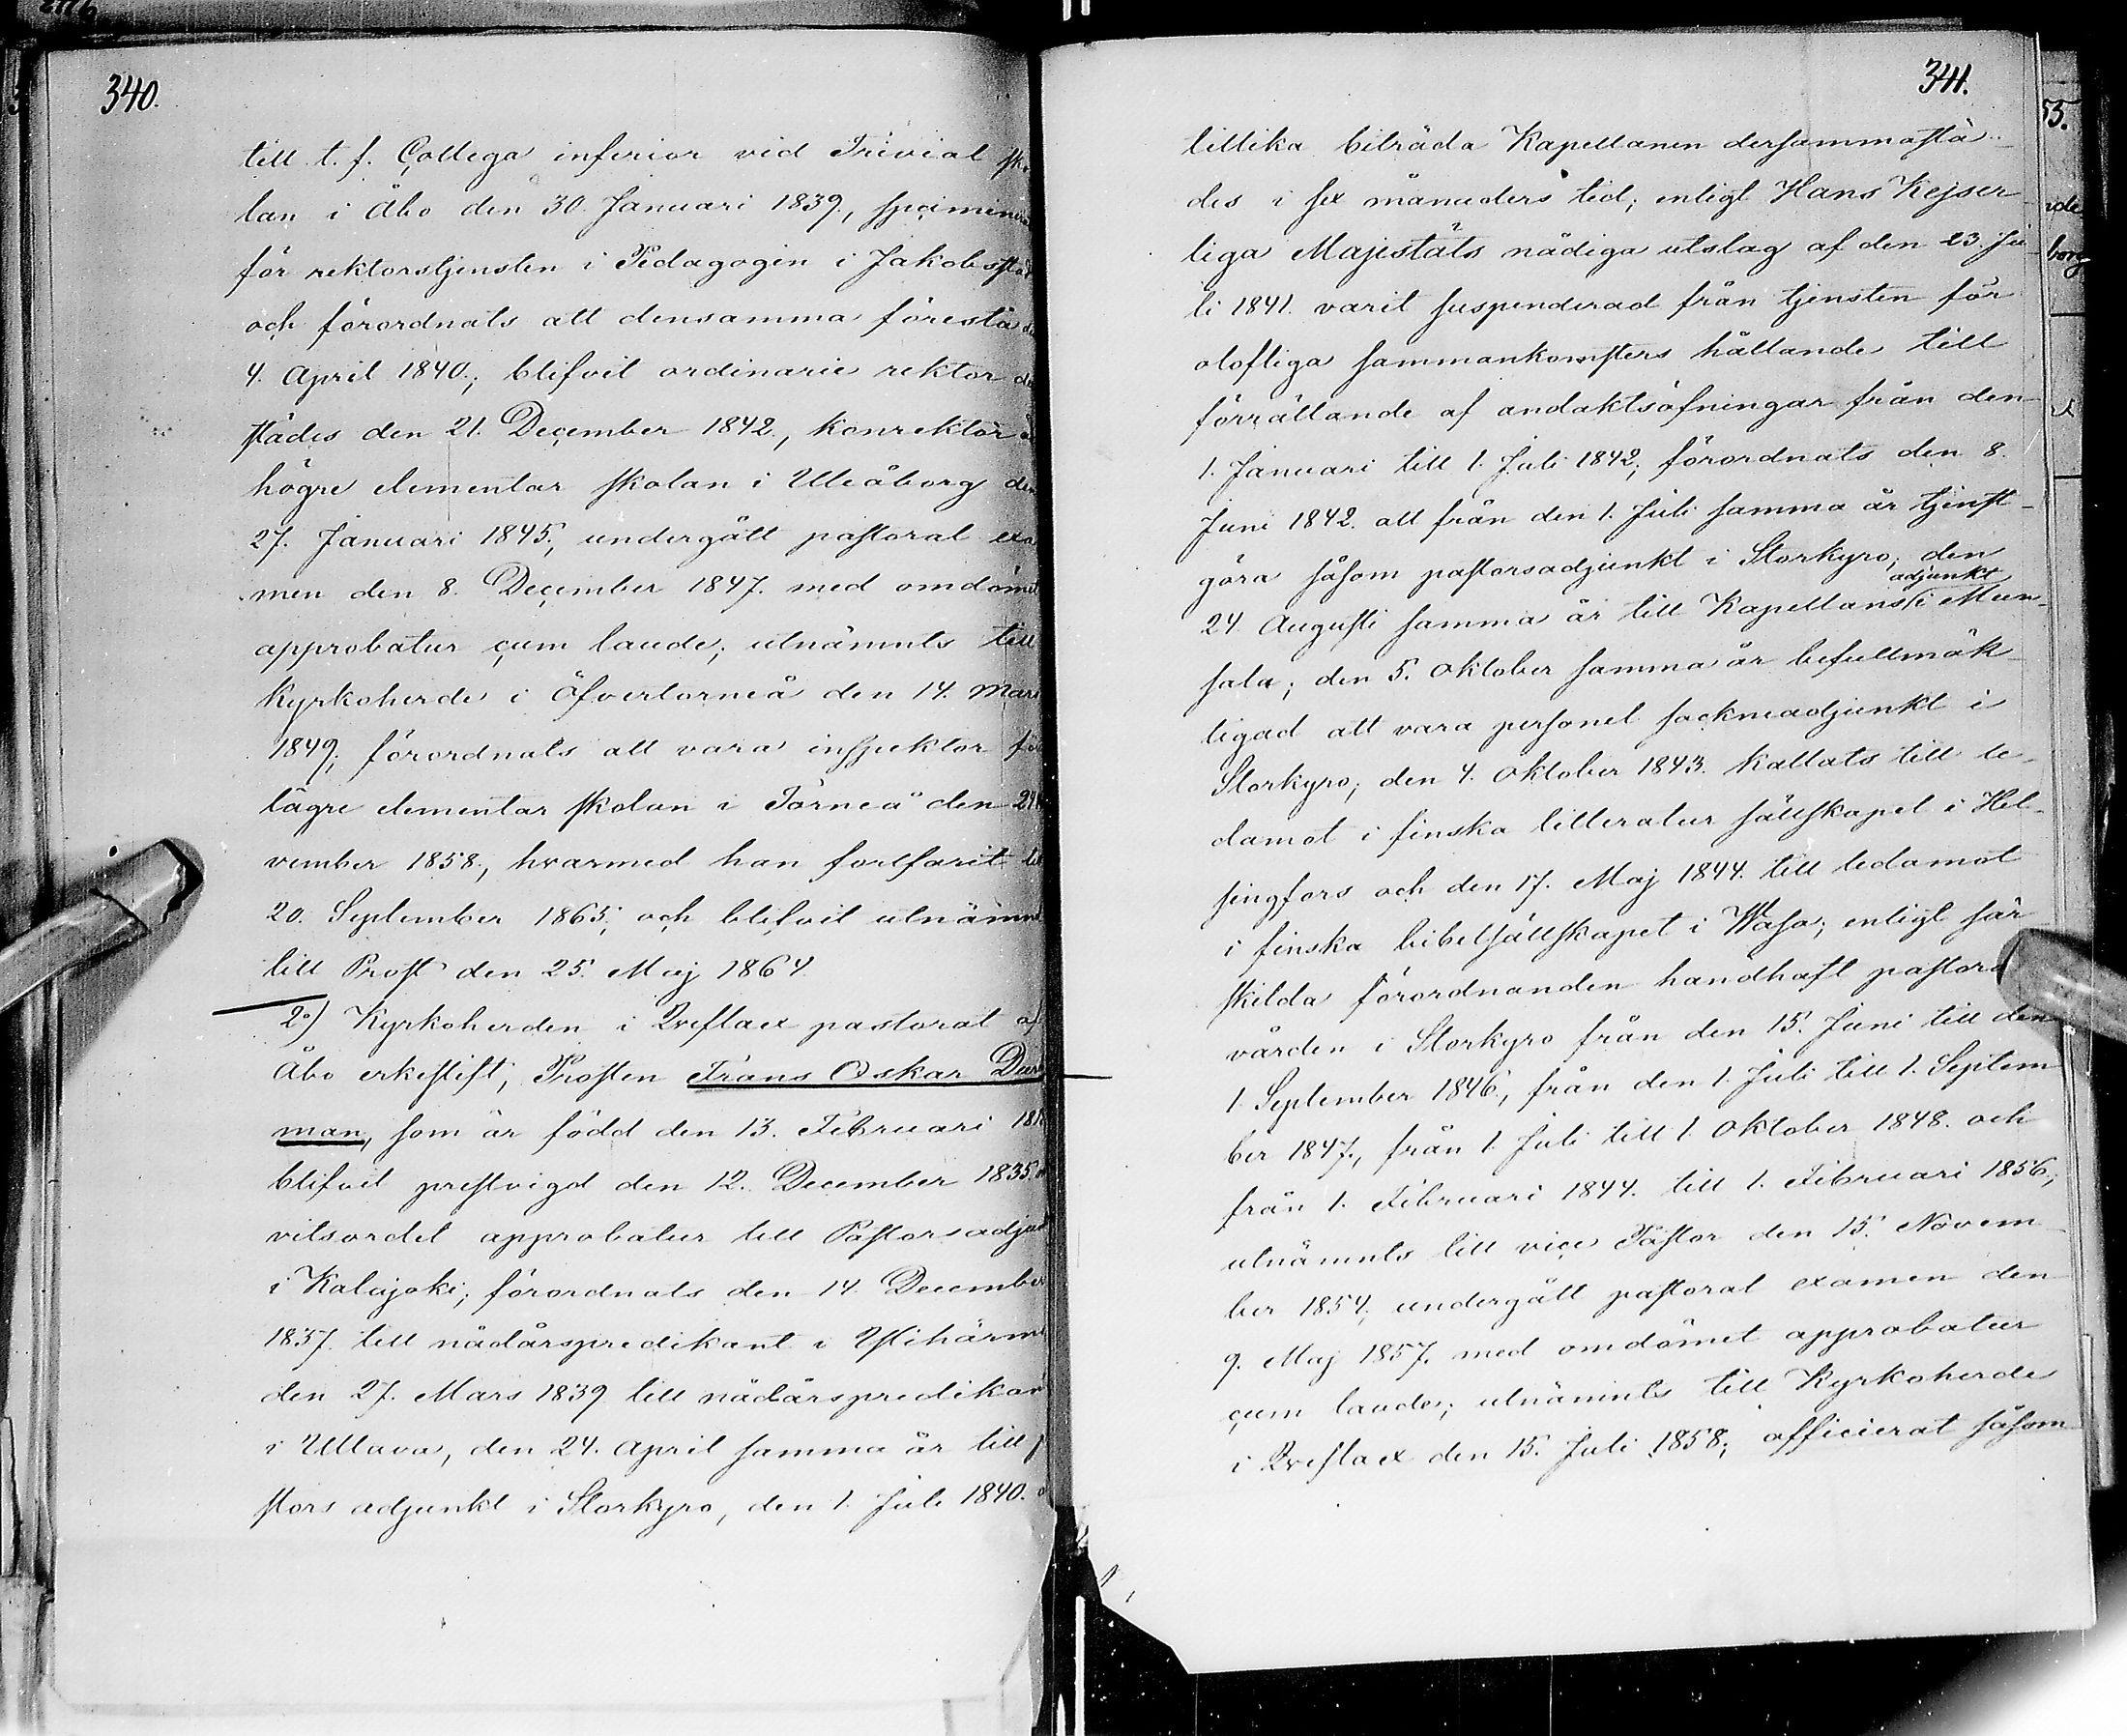 340.
till t. f. Collega inferior vid Trivial sko
lan i Åbo den 30. Januari 1839., specimine
för rektorstjensten i Pedagogin i Jakobsstad
och förordnats att densamma förestå den
4. April 1840.; blifvit ordinarie rektor der
städes den 21. December 1842., konrektor
högre elementar skolan i Uleåborg den
27. Januari 1845., undergått pastoral exa
men den 8. December 1847. med omdömet
approbatur cum laude; utnämnts till
Kyrkoherde i Öfvertorneå den 14. Mars
1849; förordnats att vara inspektor för
lägre elementar skolan i Torneå den
vember 1858., hvarmed han fortfarit till
20. September 1865; och blifvit utnämnd
till Prost den 25. Maj 1864
2o) Kyrkoherden i Qveflax pastorat af
Åbo erkestift; Prosten Frans Oskar Dur
man, som är född den 13. Februari 181
blifvit prestvigd den 12. December 1835.
vitsordet approbatur till Pastorsadjunkt
i Kalajoki; förordnats den 14. December
1837. till nådårspredikant i Ylihärmä
den 27. Mars 1839 till nådårspredikan
i Ullava, den 24. April samma år till p
stors adjunkt i Storkyro, den 1. Juli 1840.
341.
tillika biträda Kapellanen dersammastä-
des i sex månaders tid; enligt Hans Kejser-
liga Majestäts nådiga utslag af den 23. Ju-
li 1841. varit suspenderad från tjensten för
olofliga sammankomsters hållande till
förrättande af andaktsöfningar från den
1. Januari till 1. Juli 1842; förordnats den 8.
Juni 1842. att från den 1. Juli samma år tjenst-
göra såsom pastorsadjunkt i Storkyro; den
adjunkt
24 Augusti samma år till Kapellans i Mun-
sala; den 5. Oktober samma år befullmäk-
tigad att vara personel sockneadjunkt i
Storkyro; den 4. Oktober 1843. kallats till le-
damot i finska litteratur sällskapet i Hel-
singfors och den 17. Maj 1844. till ledamot
i finska bibelsällskapet i Wasa; enligt sär
skilda förordnanden handhaft pastora
vården i Storkyro från den 15. Juni till den
1. September 1846., från den 1. Juli till 1. Septem
ber 1847., från 1. Juli till 1. Oktober 1848. och
från 1. Februari 1844. till 1. Februari 1856.;
utnämnts till vice Pastor den 15. Novem-
ber 1854; undergått pastoral examen den
9. Maj 1857. med omdömet approbatur
cum laude; utnämnts till Kyrkoherde
i Qveflax den 15. Juli 1858; officierat såsom